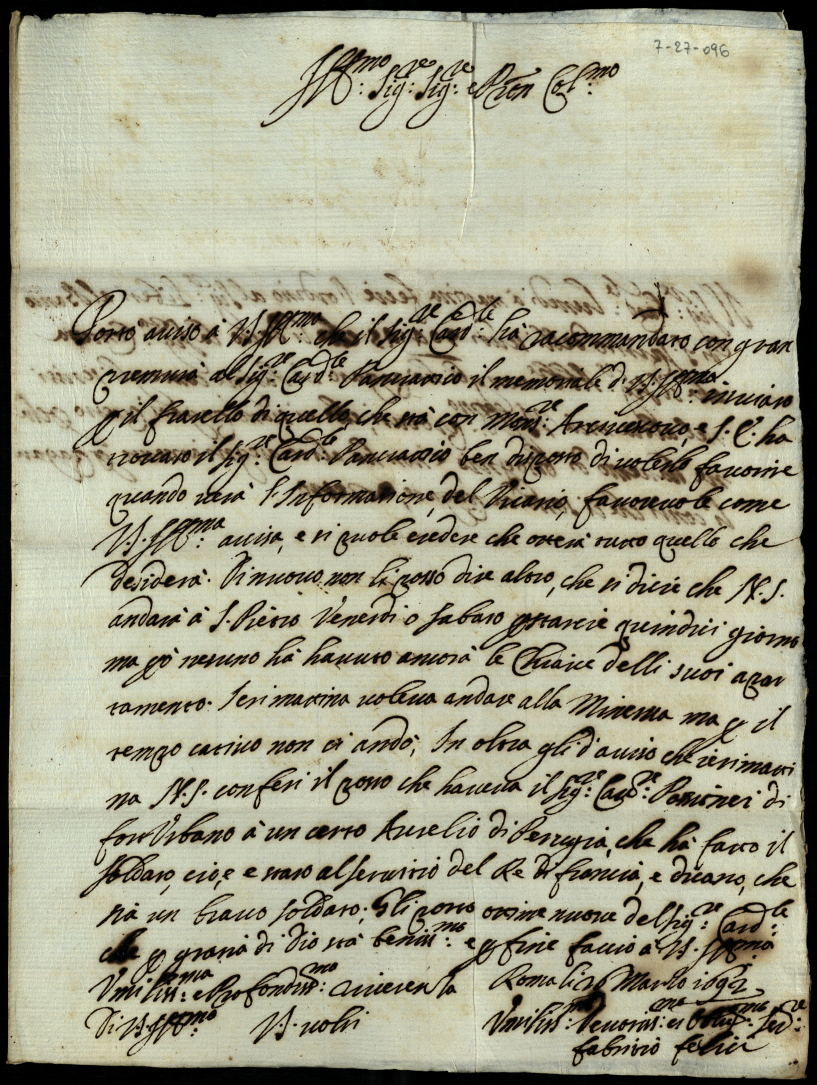 7-27-096
Ill:mo Sig:re Sig:re e Pron Col:mo
Porto auiso à V.S. Ill:ma che il Sig:re Card:le hà racommandato con gran
premura al Sig:re Card:le Panciatico il memoriale di V.S. Ill:ma inuiato
p il fratello di quello, che stà con Mons:re Arciuescouo, e S. E: ha
trouato il Sig:re Card:le Panciatico ben disposto di volerlo fauorire
quando verà l'Informatione, del Vicario, fauoreuole come
V.S. Ill:ma auisa, e si puole credere che otterà tutto quello che
desidera. Di nuouo non li posso dire altro, che si dicie che N.S.
andarà à S. Pietro Venerdì o Sabato p starcie quindici giorni
ma pò nesuno hà hauuto ancora le Chiaue delli suoi apar
tamento. Ierimatina voleua andare alla Minerua ma p il
tempo cattiuo non ci andò; In oltra gli dò auiso che ierimatti
na N.S. conferì il posto che haueua il Sig:re Cau:re Passionei di
forte Urbano à un certo Aurelio di Perugia, che hà fatto il
soldato, cioè, e stato al seruitio del Re di francia, e dicano, che
sia un brauo soldato; Gli porto ottime nuoue del Sig:re Card:le
che p gratia di Dio stà beniss:mo e p fine faccio à V.S. Ill:ma
Umiliss:ma e Profondiss:ma riuerenza Roma li 26 Marzo 1692
Di V.S. Ill:ma V. volti Umiliss:mo Deuotiss:mo et Oblig:mo Ser:re
fabritio felici